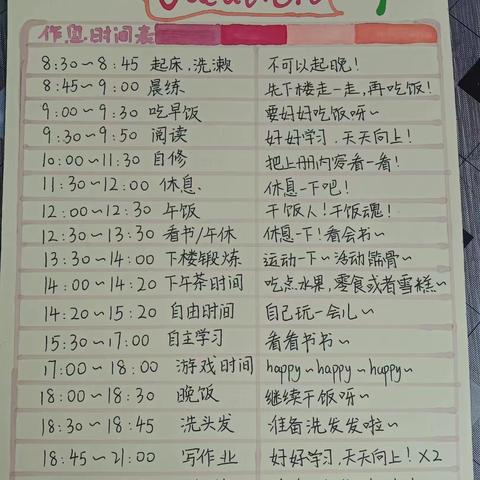 作息时间表
8:30～8:45 起床,洗漱 不可以起晚!
8:45～9:00 晨练 先下楼走一走,再吃饭!
9:00～9:30 吃早饭 要好好吃饭呀~
9:30～9:50 阅读 好好学习,天天向上!
10:00～11:30 自修 把上册内容看一看!
11:30～12:00 休息. 休息一下吧!
12:00～12:30 午饭 干饭人!干饭魂!
12:30～13:30 看书/午休 休息一下!看会书~
13:30～14:00 下楼锻炼 运动一下~活动筋骨~
14:00～14:20 下午茶时间 吃点水果,零食或者雪糕~
14:20～15:20 自由时间 自己玩一会儿~
15:30～17:00 自主学习 看看书书~
17:00～18:00 游戏时间 happy~happy~happy~
18:00～18:30 晚饭 继续干饭呀~
18:30～18:45 洗头发 准备洗发发啦~
18:45～21:00 写作业 好好学习,天天向上!X2